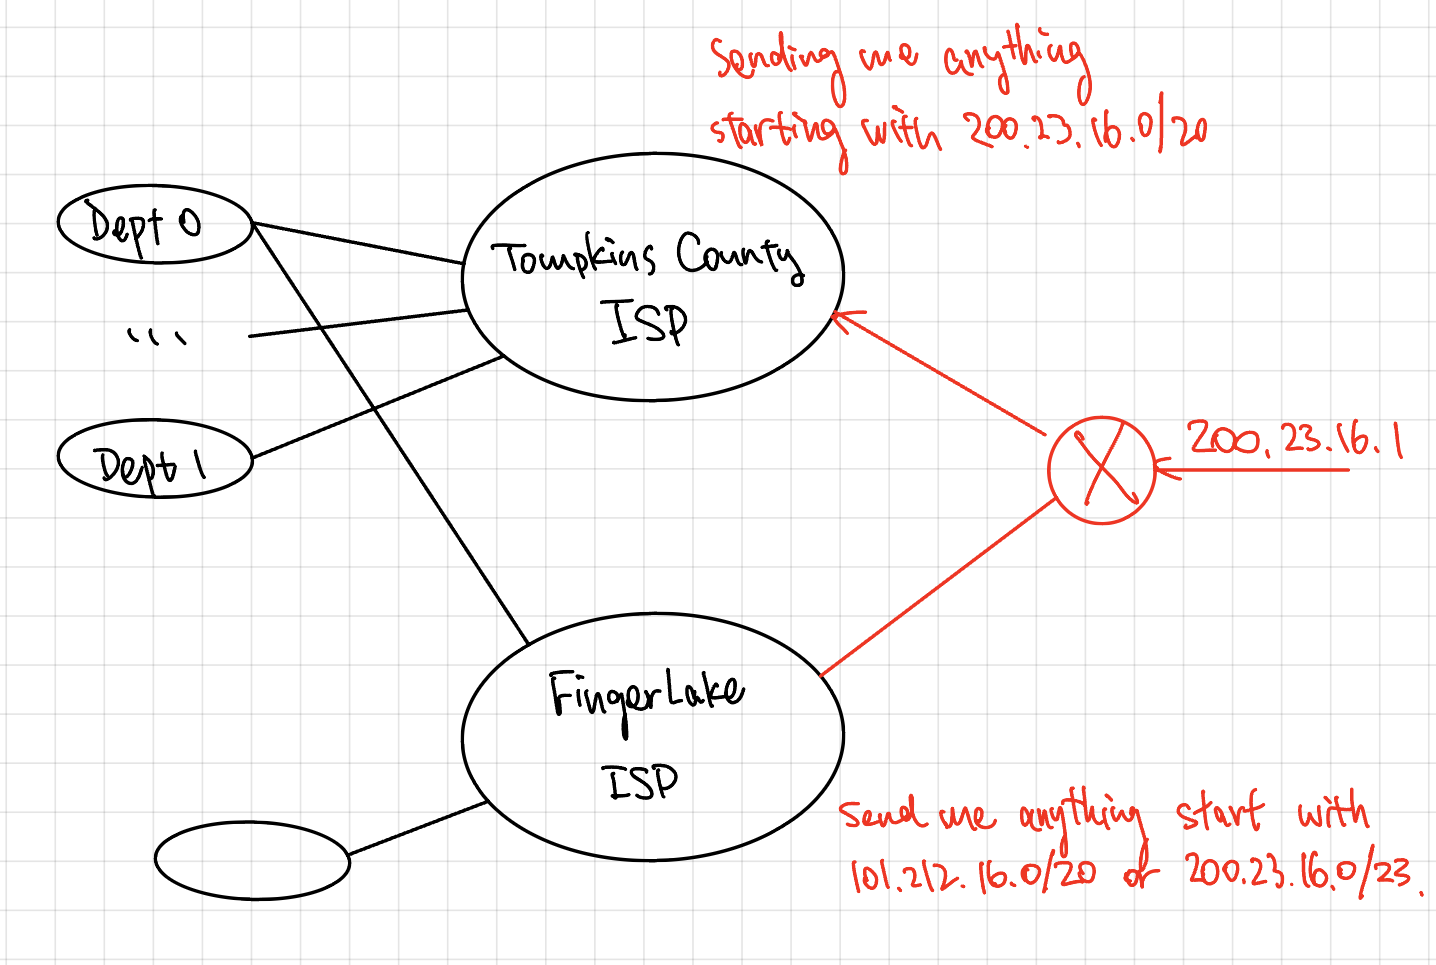 Sending me anything
starting with 200.23.16.0/20
Dept 0
Tompkins County
ISP
...
Dept 1
200.23.16.1
FingerLake
ISP
Send me anything start with
101.212.16.0/20 or 200.23.16.0/23.